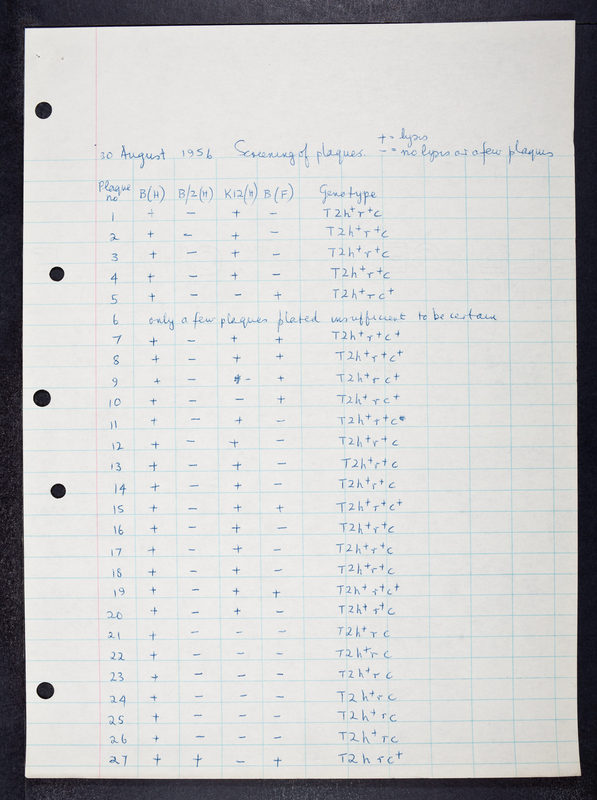 + = lysis
30 August 1956 Screening of plaques. - = no lysis or a few plaques
Plaque no B(H) B/2(H) K12(H) B(F) Genotype
1 + - + - T2h⁺r⁺c
2 + - + - T2h⁺r⁺c
3 + - + - T2h⁺r⁺c
4 + - + - T2h⁺r⁺c
5 + - - + T2h⁺rc⁺
6 only a few plaques plated insufficient to be certain
7 + - + + T2h⁺r⁺c⁺
8 + - + + T2h⁺r⁺c⁺
9 + - - + T2h⁺rc⁺
10 + - - + T2h⁺rc⁺
11 + - + - T2h⁺r⁺c
12 + - + - T2h⁺r⁺c
13 + - + - T2h⁺r⁺c
14 + - + - T2h⁺r⁺c
15 + - + + T2h⁺r⁺c⁺
16 + - + - T2h⁺r⁺c
17 + - + - T2h⁺r⁺c
18 + - + - T2h⁺r⁺c
19 + - + + T2h⁺r⁺c⁺
20 + - + - T2h⁺r⁺c
21 + - - - T2h⁺rc
22 + - - - T2h⁺rc
23 + - - - T2h⁺rc
24 + - - - T2h⁺rc
25 + - - - T2h⁺rc
26 + - - - T2h⁺rc
27 + + - + T2hrc⁺